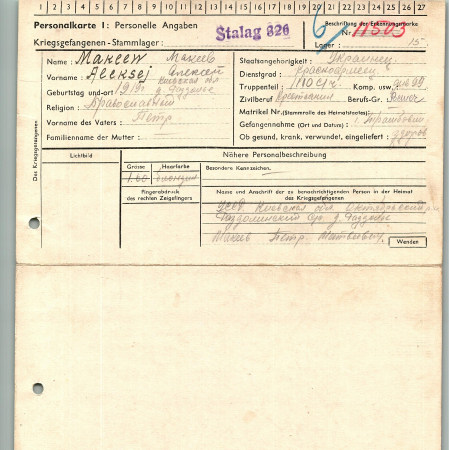 1 2 3 4 5 6 7 8 9 10 11 12 13 14 15 16 17 18 19 20 21 22 23 24 25 26 27
Personalkarte I: Personelle Angaben
Beschriftung der Erkennungsmarke
Stalag 326
Nr. 11503
Kriegsgefangenen-Stammlager:
Lager:
Des Kriegsgefangenen
Name: Makeew Макеев
Vorname: Aleksej Алексей
Geburtstag und -ort:
Religion: Православный
Vorname des Vaters: Петр
Familienname der Mutter:
Staatsangehörigkeit: Украинец
Dienstgrad: Красноармеец
Truppenteil: Komp. usw.
Zivilberuf: Berufs-Gr.
Matrikel Nr. (Stammrolle des Heimatstaates):
Gefangennahme (Ort und Datum):
Ob gesund, krank, verwundet, eingeliefert: здоров
Lichtbild
Nähere Personalbeschreibung
Grösse
Haarfarbe
1.60
блондин
Besondere Kennzeichen:
Fingerabdruck
des rechten Zeigefingers
Name und Anschrift der zu benachrichtigenden Person in der Heimat
des Kriegsgefangenen
УССР Киевская обл Октябрьский
Макеев Петр Матвеевич
Wenden